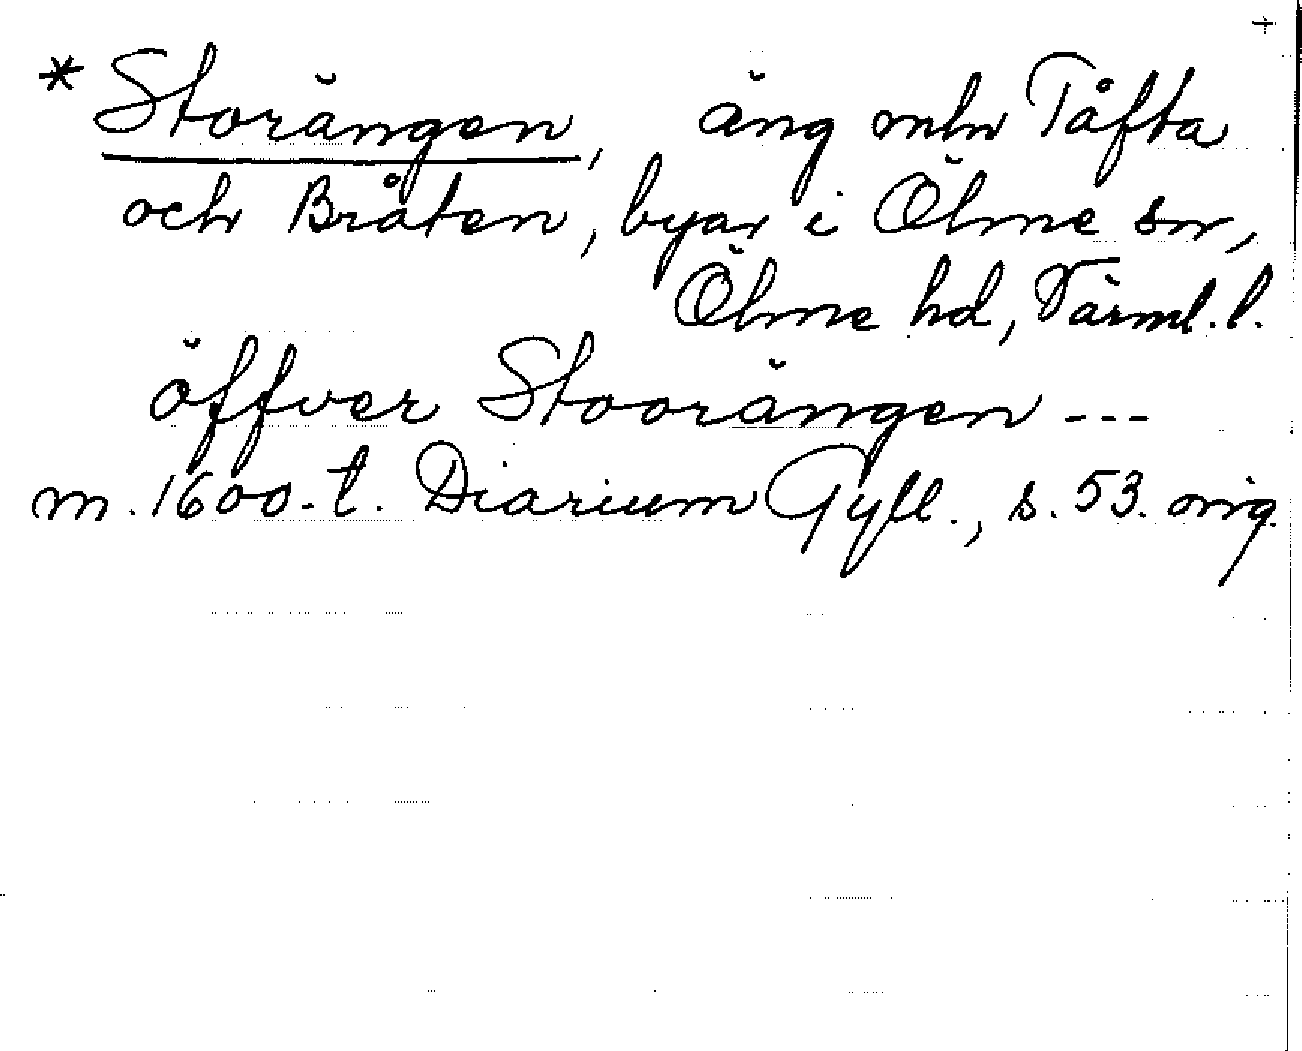 +
* Storängen, äng mln Tåfta
och Bråten, byar i Ölme sn,
Ölme hd, Värml. l.
öffver Stoorängen ---
m. 1600-t. Diarium Gyll., s. 53. orig.